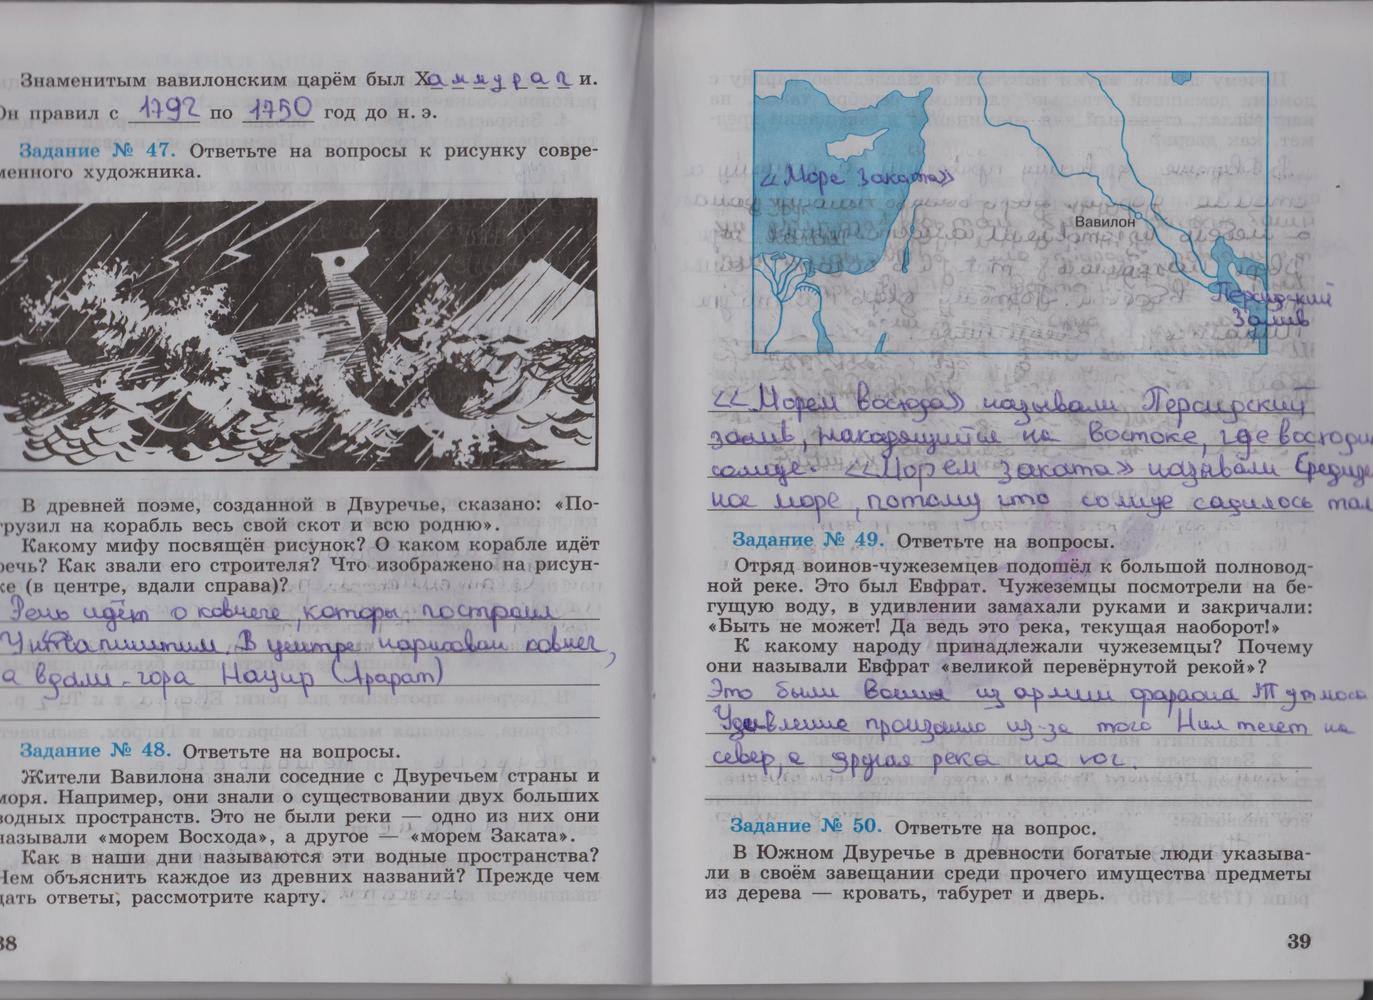 Знаменитым вавилонским царём был Хаммурапи.
Он правил с 1792 по 1750 год до н. э.
Задание № 47. Ответьте на вопросы к рисунку совре-
менного художника.
В древней поэме, созданной в Двуречье, сказано: «По-
грузил на корабль весь свой скот и всю родню».
Какому мифу посвящён рисунок? О каком корабле идёт
речь? Как звали его строителя? Что изображено на рисун-
ке (в центре, вдали справа)?
Речь идёт о ковчеге, которы построил
Утнапиштим. В центре нарисован ковчег,
а вдали - гора Нацир (Арарат)
Задание № 48. Ответьте на вопросы.
Жители Вавилона знали соседние с Двуречьем страны и
моря. Например, они знали о существовании двух больших
водных пространств. Это не были реки — одно из них они
называли «морем Восхода», а другое — «морем Заката».
Как в наши дни называются эти водные пространства?
Чем объяснить каждое из древних названий? Прежде чем
дать ответы, рассмотрите карту.
38
«Море Заката»
Вавилон
Персидский
Залив
«Морем восхода» называли Персидский
залив, находящийся на востоке, где восходи
солнце. «Морем заката» называли Средизе
ное море, потому что солнце садилось там
Задание № 49. Ответьте на вопросы.
Отряд воинов-чужеземцев подошёл к большой полновод-
ной реке. Это был Евфрат. Чужеземцы посмотрели на бе-
гущую воду, в удивлении замахали руками и закричали:
«Быть не может! Да ведь это река, текущая наоборот!»
К какому народу принадлежали чужеземцы? Почему
они называли Евфрат «великой перевёрнутой рекой»?
Это были воины из армии фараона Тутмоса
Удивление произошло из-за того Нил течет на
север, а другая река на юг.
Задание № 50. Ответьте на вопрос.
В Южном Двуречье в древности богатые люди указыва-
ли в своём завещании среди прочего имущества предметы
из дерева — кровать, табурет и дверь.
39